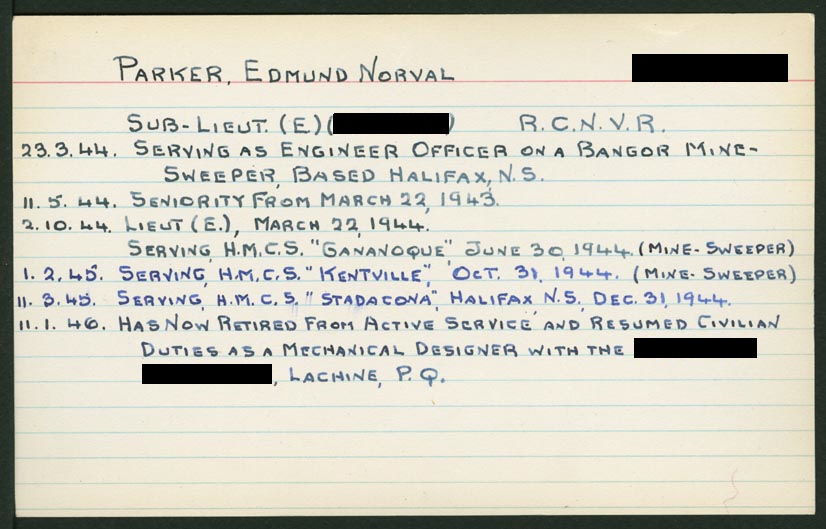 PARKER, EDMUND NORVAL
SUB-LIEUT. (E) ( ) R.C.N.V.R.
23.3.44. SERVING AS ENGINEER OFFICER ON A BANGOR MINE-
SWEEPER, BASED HALIFAX, N.S.
11.5.44. SENIORITY FROM MARCH 22, 1943.
2.10.44. LIEUT (E.), MARCH 22, 1944.
SERVING, H.M.C.S. "GANANOQUE", JUNE 30, 1944. (MINE-SWEEPER)
1.2.45. SERVING, H.M.C.S. "KENTVILLE", OCT. 31, 1944. (MINE-SWEEPER)
11.3.45. SERVING, H.M.C.S. "STADACONA", HALIFAX N.S, DEC. 31, 1944.
11.1.46. HAS NOW RETIRED FROM ACTIVE SERVICE AND RESUMED CIVILIAN
DUTIES AS A MECHANICAL DESIGNER WITH THE
, LACHINE, P.Q.